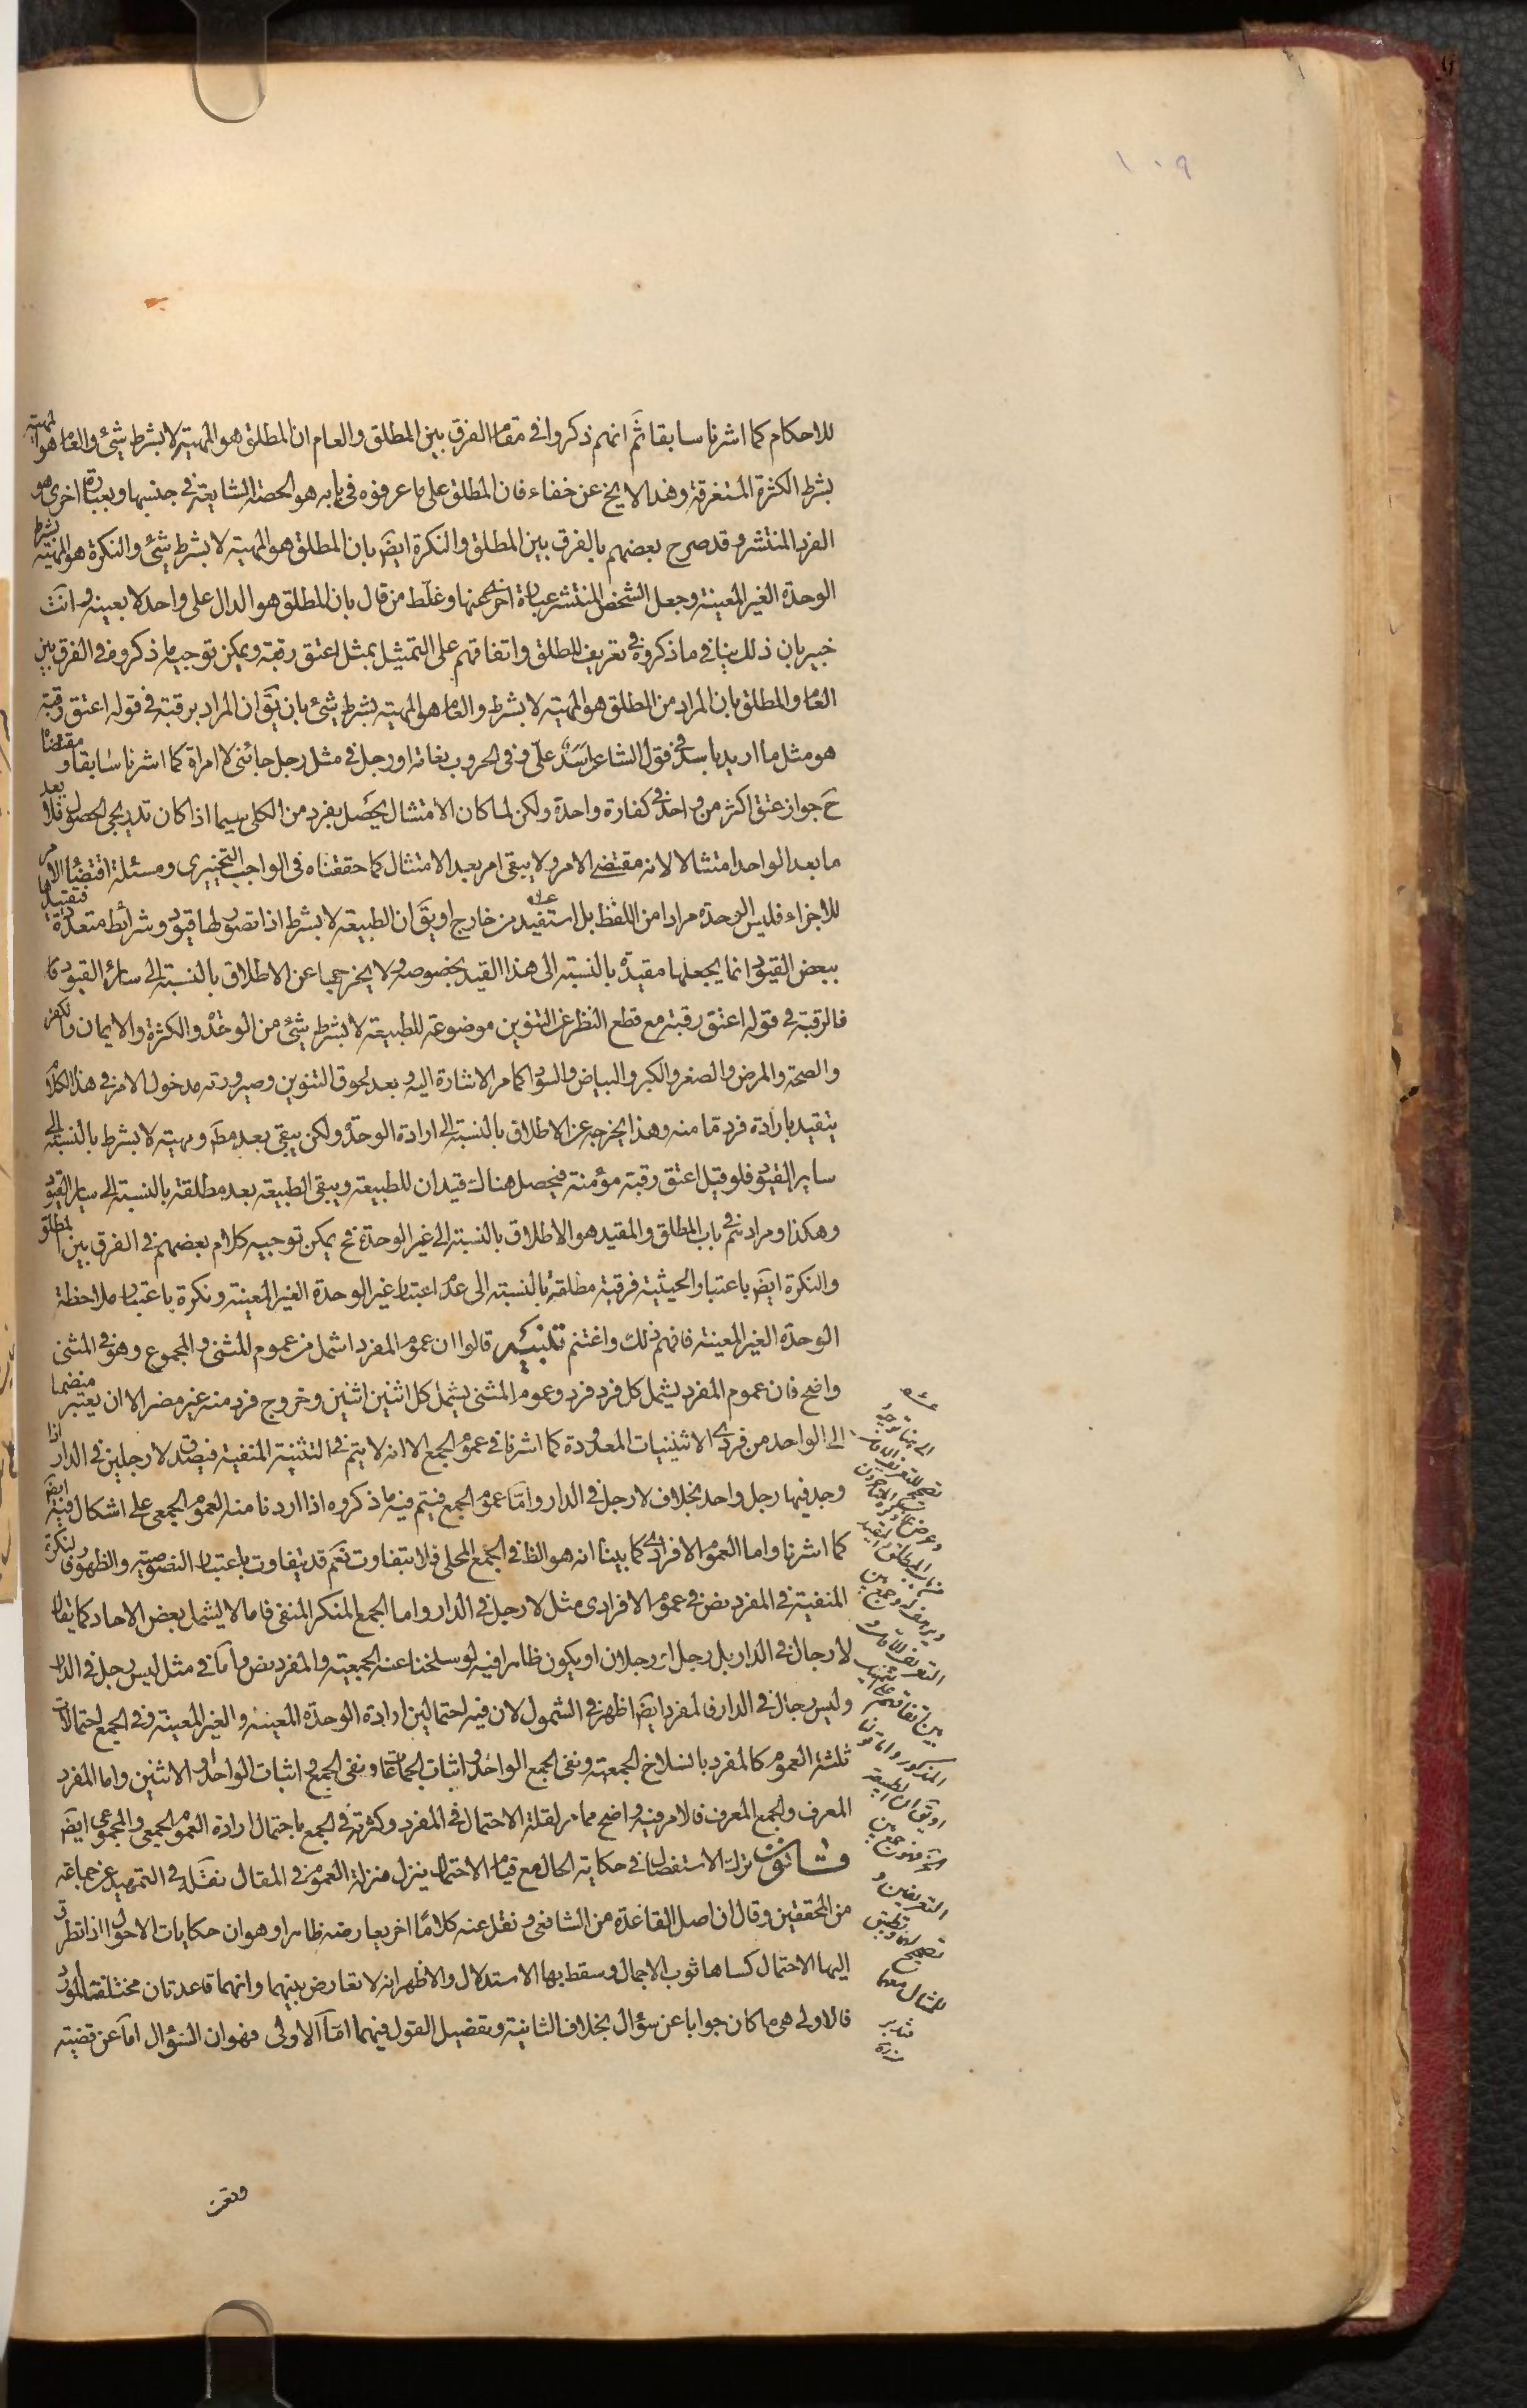 ١٠٩
للاحكام كما اشرنا سابقا ثم انهم ذكروا فى مقام الفرق بين المطلق والعام ان المطلق هو المهية لا بشرط شئ والعام هو المهية
بشرط الكثرة المستغرقة وهذا لا يخ عن خفاء فان المطلق على ما عرفوه فى بابه هو الحصة الشايعة فى جنسها وبعبارة اخرى هو
الفرد المنتشر وقد صرح بعضهم بالفرق بين المطلق والنكرة ايضَ بان المطلق هو المهية لا بشرط شئ والنكرة هو المهية بشرط
الوحدة الغير المعينة وجعل الشخص المنتشر عبارة اخرى عنها وغلّط من قال بان المطلق هو الدال على واحد لا بعينه وانت
خبير بان ذلك ينافى ما ذكروه فى تعريف المطلق واتفاقهم على التمثيل بمثل اعتق رقبة ويمكن توجيه ما ذكروه فى الفرق بين
العام والمطلق بان المراد من المطلق هو المهية لا بشرط والعام هو المهية بشرط شئ بان يقَ ان المراد برقبة فى قوله اعتق رقبة
هو مثل ما اريد باسد فى قول الشاعر اسَدٌ علىّ وفى الحروب نعامة او رجل فى مثل رجل جائنى لا امراة كما اشرنا سابقا ومقتضاه
حَ جواز عتق اكثر من واحد فى كفارة واحدة ولكن لما كان الامتثال يحصَل بفرد من الكلى سيما اذا كان تدريجى الحصول فلا يعد
ما بعد الواحد امتثالا لانه مقتضى الامر ولا يبقى امر بعد الامتثال كما حققناه فى الواجب التخييرى ومسئلة اقتضاء الامر
للاجزاء فليس الوحدة مرادا من اللفظ بل استفيد من خارج او يقَ ان الطبيعة لا بشرط اذا تصور لها قيود وشرائط متعددة فتقييدها
ببعض القيود انما يجعلها مقيدّة بالنسبة الى هذا القيد بخصوصه ولا يخرجها عن الاطلاق بالنسبة الى سائر القيود
فالرقبة فى قوله اعتق رقبة مع قطع النظر عن التنوين موضوعة للطبيعة لا بشرط شئ من الوحدة والكثرة والايمان والكفر
والصحة والمرض والصغر والكبر والبياض والسواد كما مر الاشارة اليه وبعد لحوق التنوين وصيرورته مدخول الامر فى هذا الكلام
يتقيد بارادة فرد مّا منه وهذا يخرجه عن الاطلاق بالنسبة الى ارادة الوحدة ولكن يبقى بعد مطَ ومهية لا بشرط بالنسبة الى
ساير القيود فلو قيل اعتق رقبة مؤمنة فيحصل هناك قيدان للطبيعة ويبقى الطبيعة بعد مطلقة بالنسبة الى ساير القيود
وهكذا ومرادهم فى باب المطلق والمقيد هو الاطلاق بالنسبة الى غير الوحدة فح يمكن توجيه كلام بعضهم فى الفرق بين المطلق
والنكرة ايضَ باعتبار الحيثية فرقبة مطلقة بالنسبة الى عدم اعتبار غير الوحدة الغير المعينة ونكرة باعتبار ملاحظة
الوحدة الغير المعينة فافهم ذلك واغتنم تنبيه قالوا ان عموم المفرد اشمل من عموم المثنى والمجموع وهو فى المثنى
واضح فان عموم المفرد يشمل كل فرد فرد وعموم المثنى يشمل كل اثنين اثنين وخروج فرد منه غير مضر الا ان يعتبر منضما
الى الواحد من فردى الاثنينيات المعدودة كما اشرنا فى عموم الجمع الا انه لا يتم فى التثنية المنفية فيصدق لا رجلين فى الدار اذا
وجد فيها رجل واحد بخلاف لا رجل فى الدار وامّا عموم الجمع فيتم فيه ما ذكروه اذا اردنا منه العموم الجمعى على اشكال فيه ايضَ
كما اشرنا واما العموم الافرادى كما بينا انه هو الظ فى الجمع المحلى فلا يتفاوت نعَم قد يتفاوت باعتبار النصوصية والظهور فالنكرة
المنفية فى المفرد نص فى عموم الافرادى مثل لا رجل فى الدار واما الجمع المنكر المنفى فاما لا يشمل بعض الاحاد كما يقال
لا رجال فى الدار بل رجل او رجلان او يكون ظاهرا فيه لو سلخنا عنه الجمعية والمفرد نص واما فى مثل ليس رجل فى الدار
وليس رجال فى الدار فالمفرد ايضَ اظهر فى الشمول لان فيه احتمالين ارادة الوحدة المعينة والغير المعينة وفى الجمع احتمالات
ثلثة العموم كالمفرد بانسلاخ الجمعية ونفى الجمع الواحد واثبات الجماعات ونفى الجمع واثبات الواحد والاثنين واما المفرد
المعرف والجمع المعرف فالامر فيه واضح مما مر لقلة الاحتمال فى المفرد وكثرته فى الجمع باحتمال ارادة العموم الجمعى والمجموعى ايضَ
قانون ترك الاستفصال فى حكاية الحال مع قيام الاحتمال ينزل منزلة العموم فى المقال نقله فى التمهيد عن جماعة
من المحققين وقال ان اصل القاعدة من الشافعى ونقل عنه كلامًا اخر يعارضه ظاهرا وهو ان حكايات الاحوال اذا تطرق
اليها الاحتمال كساها ثوب الاجمال وسقط بها الاستدلال والاظهر انه لا تعارض بينهما وانهما قاعدتان مختلفتا المورد
فالاولى هى ما كان جوابا عن سؤال بخلاف الثانية وتفصيل القول فيهما امّا الاولى فهو ان السؤال اما عن قضية
وقعت